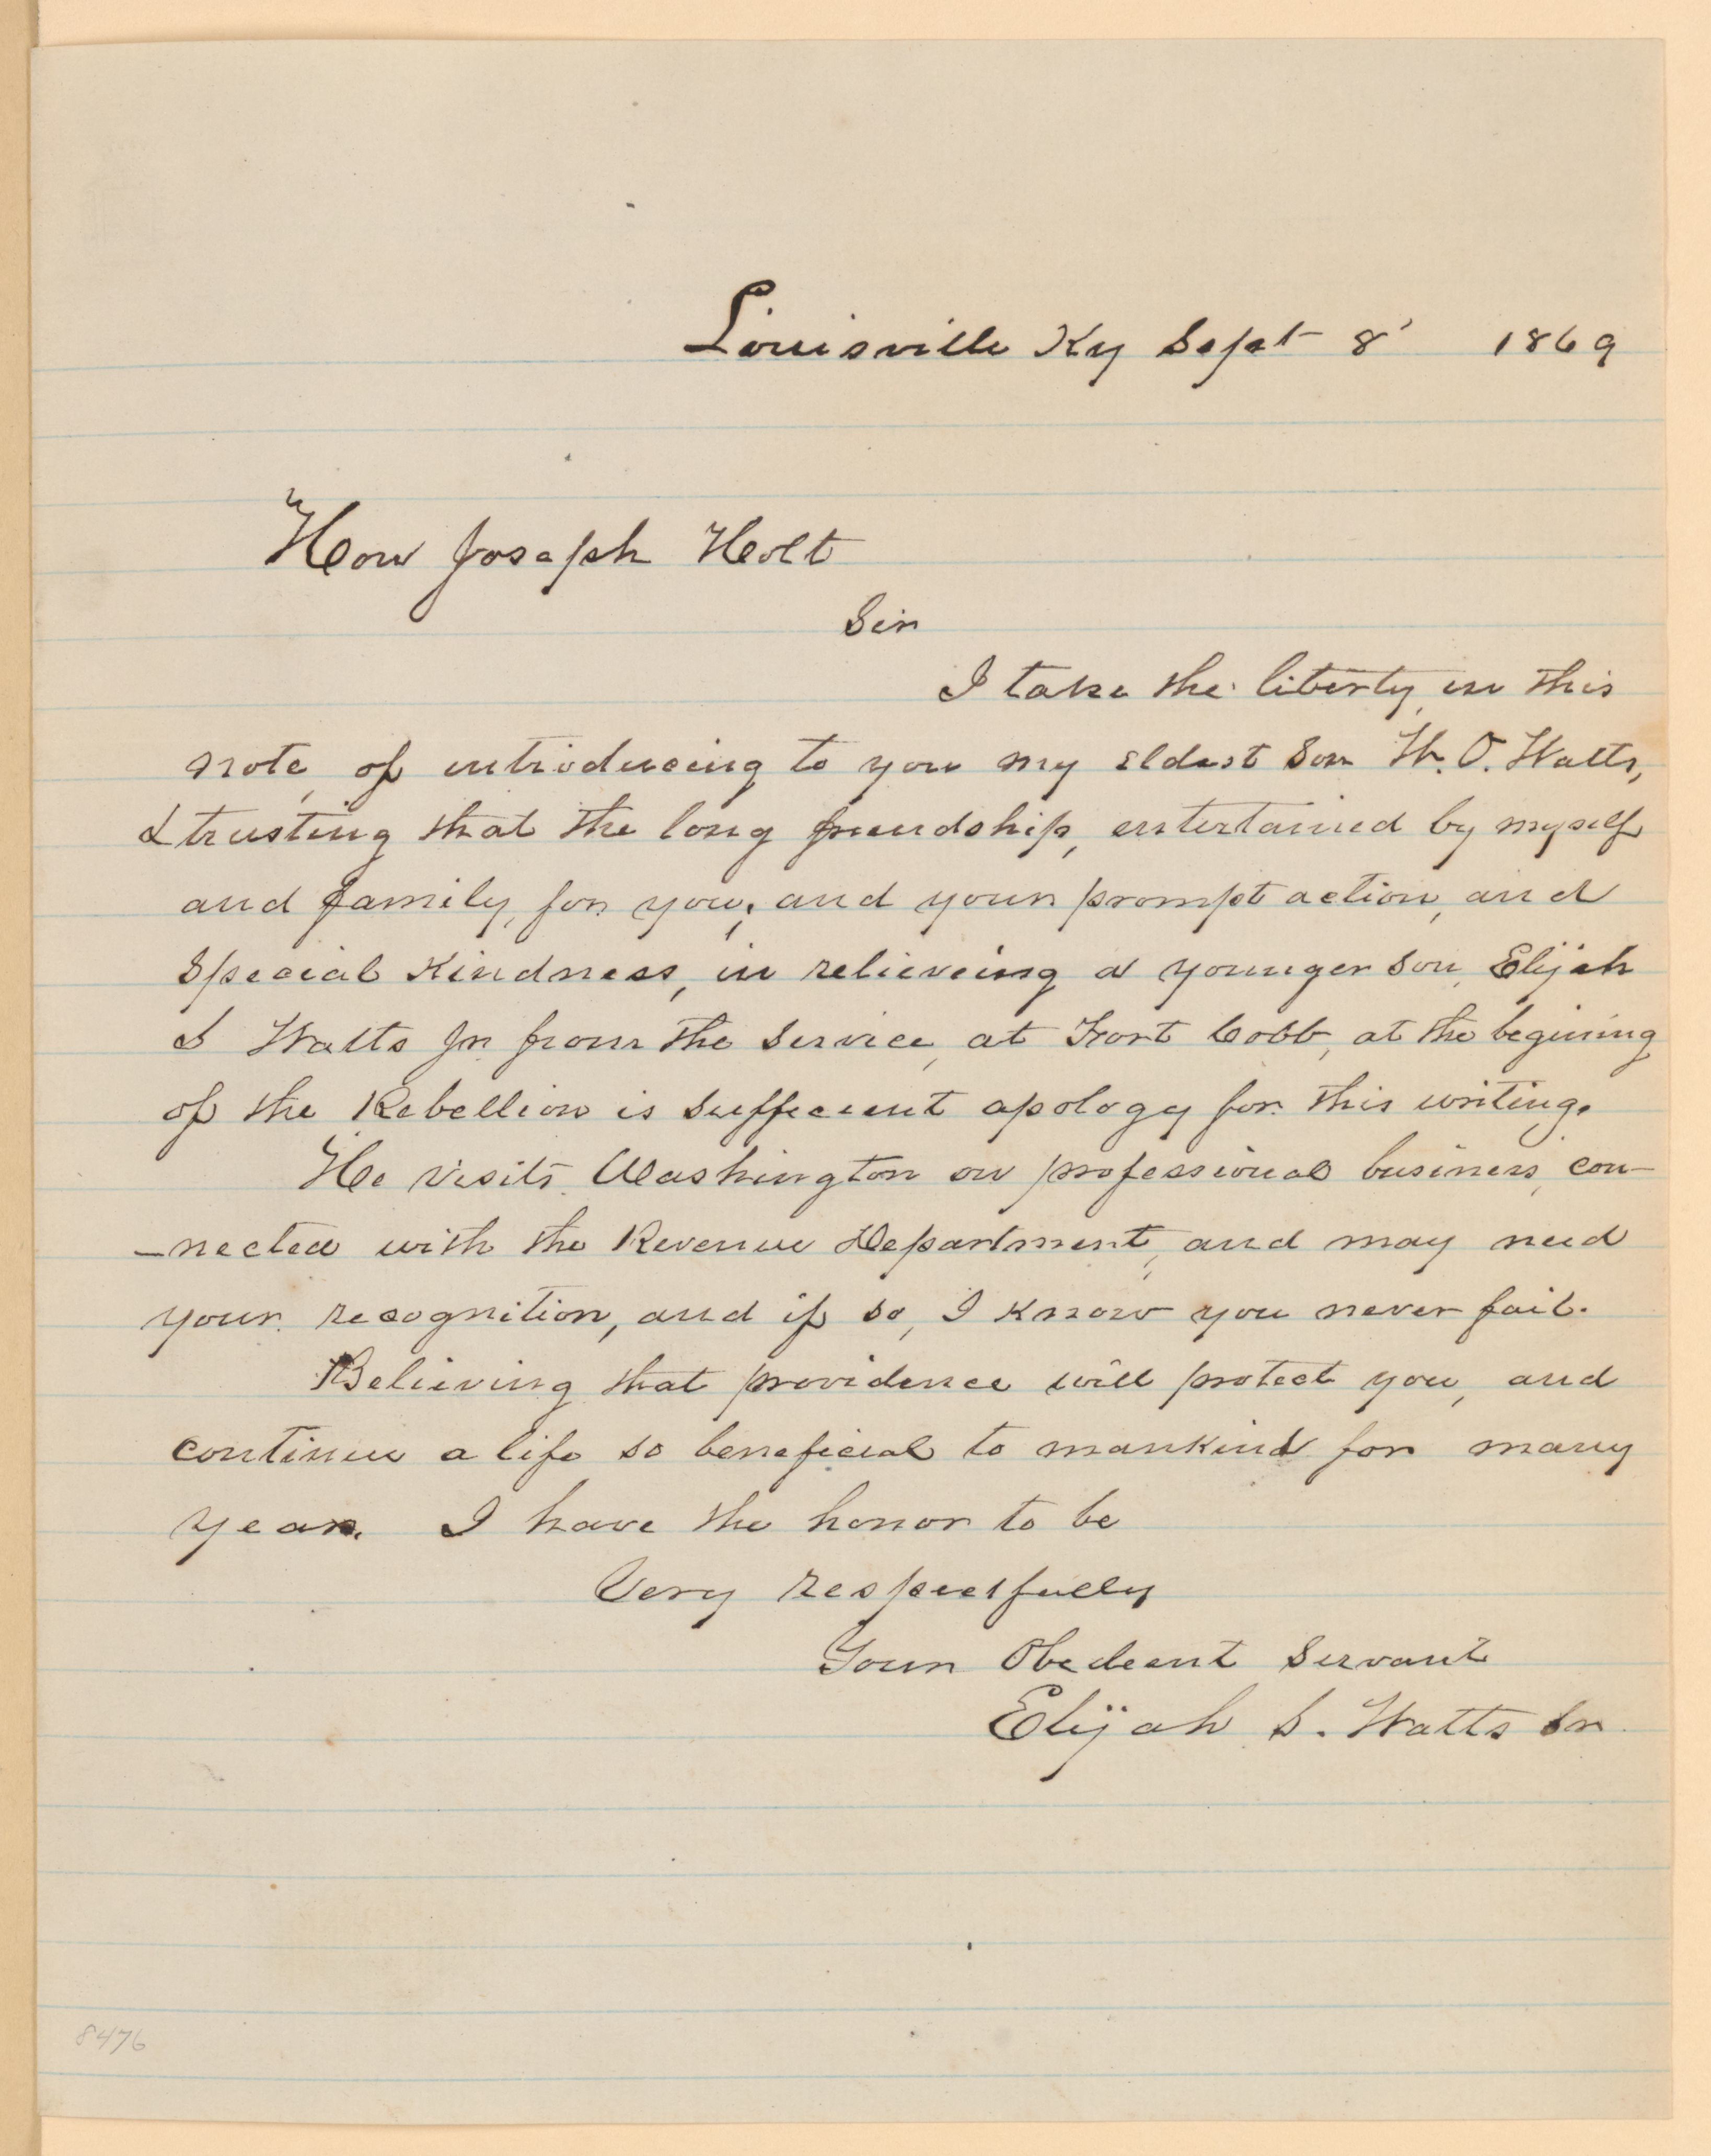 Louisville Ky Sept 8' 1869
Hon Joseph Holt
Sir
I take the liberty, in this
note, of introducing to you my eldest son W. O. Watts,
& trusting that the long friendship, entertained by myself
and family, for you, and your prompt action, and
special kindness, in relieveing a younger son, Elijah
S Watts Jr from the service, at Fort Cobb, at the begining
of the Rebellion is suffecient apology for this writing.
He visits Washington on professional business, con-
-nected with the Revenue Department, and may need
your recognition, and if so, I know you never fail.
Believing that providence will protect you, and
continue a life so beneficial to mankind for many
years. I have the honor to be
Very respectfully
Your Obedeent servant
Elijah S. Watts Sr
8476